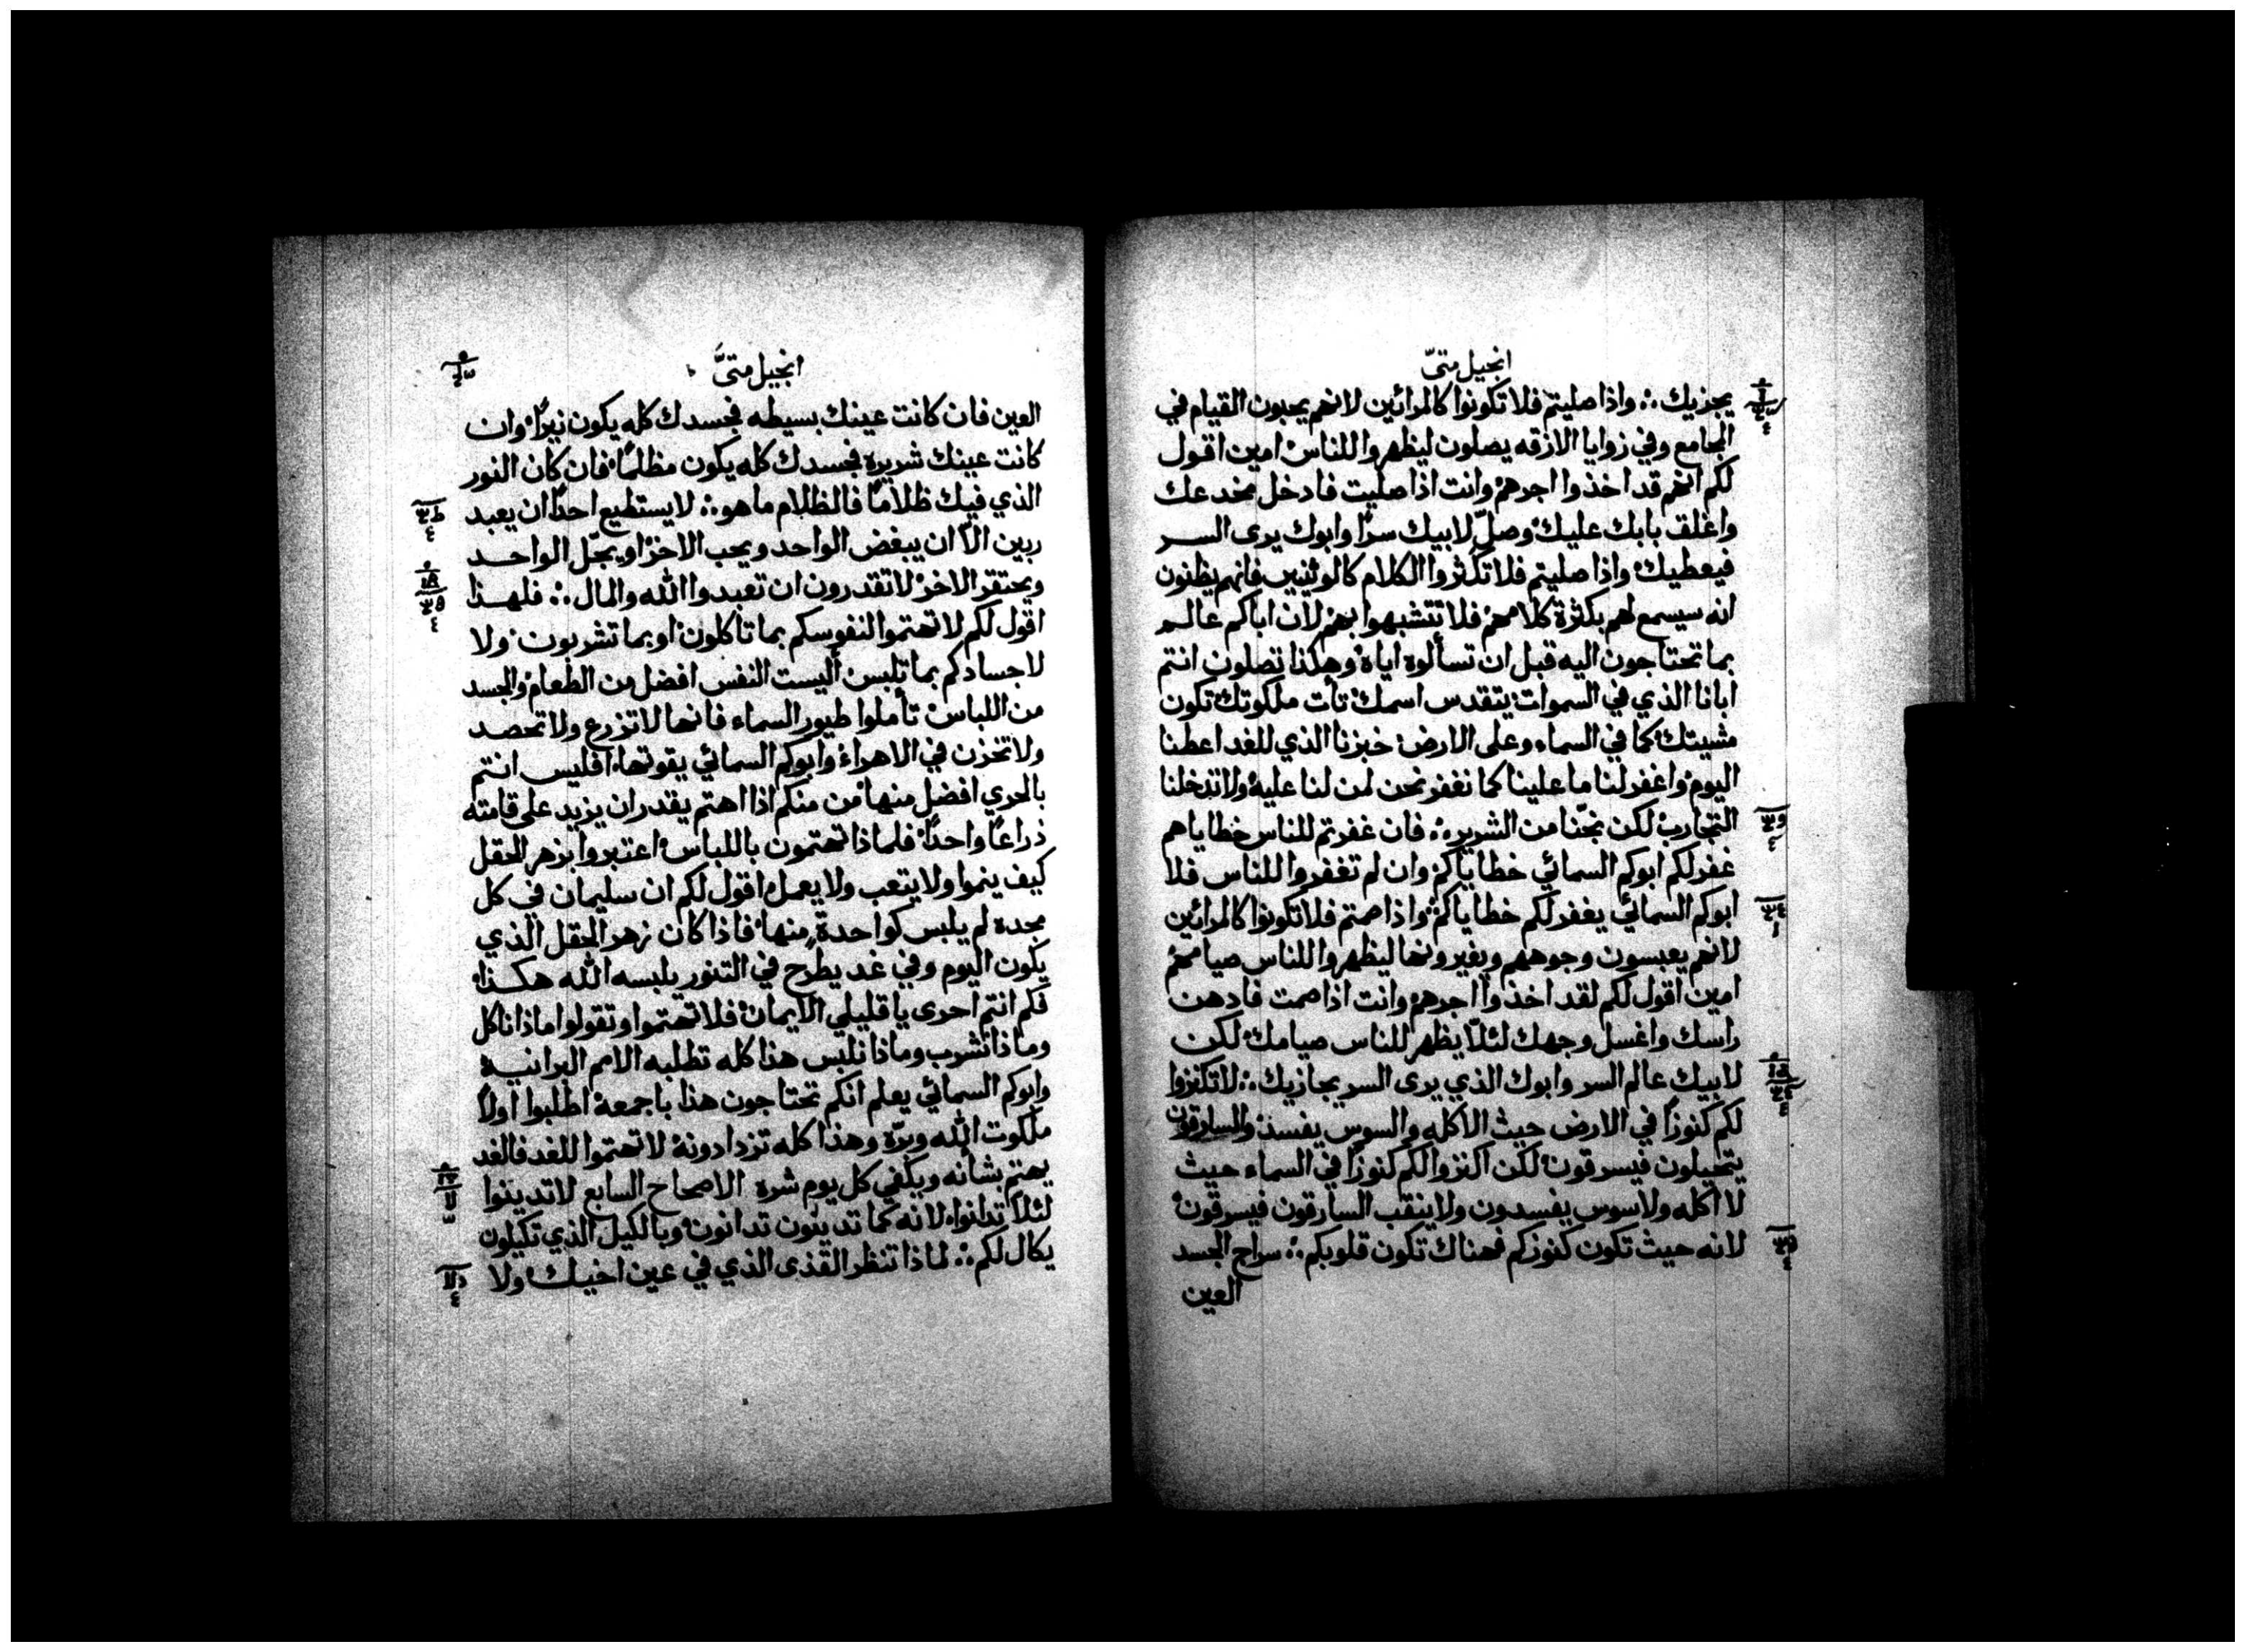 انجيل متىّ
يجزيك ؞ واذا صليتم فلا تكونوا كالمرائين لانهم يحبون القيام في
المجامع وفي زوايا الازقه يصلون ليظهروا للناس امين اقول
لكم انهم قد اخذوا اجرهم وانت اذا صليت فادخل مخدعك
واغلق بابك عليك وصلّ لابيك سرًا وابوك يرى السر
فيعطيك واذا صليتم فلا تكثروا الكلام كالوثنيين فانهم يظنون
انه سيسمع لهم بكثرة كلامهم فلا تتشبهوا بهم لان اباكم عالم
بما تحتاجون اليه قبل ان تسألوه اياه وهكذا تصلون انتم
ابانا الذي في السموات يتقدس اسمك تأت ملكوتك تكون
مشيتك كما في السماء وعلى الارض خبزنا الذي للغد اعطنا
اليوم واغفر لنا ما علينا كما نغفر نحن لمن لنا عليه ولا تدخلنا
التجارب لكن نجّنا من الشرير ؞ فان غفرتم للناس خطاياهم
غفر لكم ابوكم السمائي خطاياكم وان لم تغفروا للناس فلا
ابوكم السمائي يغفر لكم خطاياكم واذا صمتم فلا تكونوا كالمرائين
لانهم يعبسون وجوههم ويغيرونها ليظهروا للناس صيامهم
امين اقول لكم لقد اخذوا اجرهم وانت اذا صمت فادهن
راسك واغسل وجهك لئلّا يظهر للناس صيامك لكن
لابيك عالم السر وابوك الذي يرى السر يجازيك ؞ لا تكنزوا
لكم كنوزًا في الارض حيث الاكله والسوس يفسد والسارقون
يتحيلون فيسرقون لكن اكنزوا لكم كنوزًا في السماء حيث
لا اكله ولا سوس يفسدون ولا ينقب السارقون فيسرقون
لانه حيث تكون كنوزكم فهناك تكون قلوبكم ؞ سراج الجسد
العين
انجيل متىّ
العين فان كانت عينك بسيطه فجسدك كله يكون نيرًا وان
كانت عينك شريره فجسدك كله يكون مظلمًا فان كان النور
الذي فيك ظلامًا فالظلام ما هو ؞ لا يستطيع احدًا ان يعبد
ربين الّا ان يبغض الواحد ويحب الاخر او يبجّل الواحد
ويحتقر الاخر لا تقدرون ان تعبدوا الله والمال ؞ فلهذا
اقول لكم لا تهتموا لنفوسكم بما تاكلون او بما تشربون ولا
لاجسادكم بما تلبس أليست النفس افضل من الطعام والجسد
من اللباس تأملوا طيور السماء فانها لا تزرع ولا تحصد
ولا تخزن في الاهراء وابوكم السمائي يقوتها افليس انتم
بالحري افضل منها من منكم اذا اهتم يقدر ان يزيد على قامته
ذراعًا واحدًا فلماذا تهتمون باللباس اعتبروا بزهر الحقل
كيف ينموا ولا يتعب ولا يعمل اقول لكم ان سليمان في كل
مجده لم يلبس كواحدةٍ منها فاذا كان زهر الحقل الذي
يكون اليوم وفي غد يطرح في التنور يلبسه الله هكذا
فكم انتم احرى يا قليلي الايمان فلا تهتموا وتقولوا ماذا ناكل
وماذا نشرب وماذا نلبس هذا كله تطلبه الامم البرانية
وابوكم السمائي يعلم انكم تحتاجون هذا باجمعه اطلبوا اولًا
ملكوت الله وبرّه وهذا كله تزدادونه لا تهتموا للغد فالغد
يهتم بشأنه ويكفي كل يوم شره الاصحاح السابع لا تدينوا
لئلّا تدانوا لانه كما تدينون تدانون وبالكيل الذي تكيلون
يكال لكم ؞ لماذا تنظر القذى الذي في عين اخيك ولا